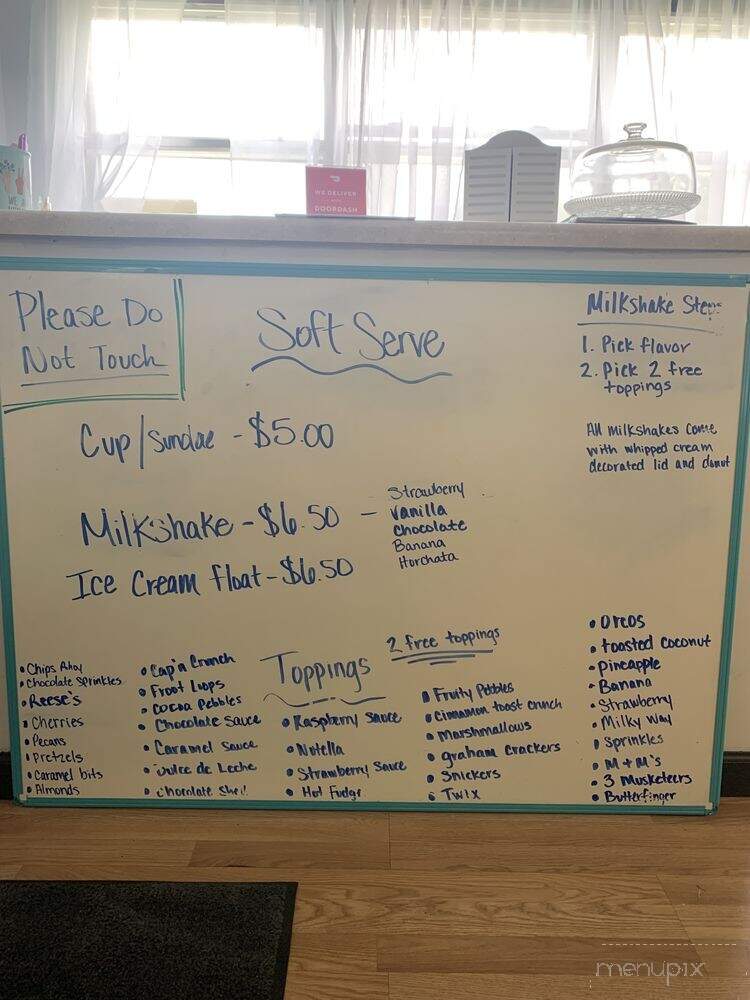 WE DELIVER
WITH
DOORDASH
Please Do
Not Touch
Soft Serve
Cup/Sundae - $5.00
Milkshake - $6.50 - Strawberry
Vanilla
Chocolate
Banana
Horchata
Ice Cream float - $6.50
Milkshake Steps
1. Pick flavor
2. Pick 2 free
toppings
All milkshakes come
with whipped cream
decorated lid and donut
Toppings
2 free toppings
• Chips Ahoy
• Chocolate Sprinkles
• Reese's
• Cherries
• Pecans
• Pretzels
• Caramel bits
• Almonds
• Cap'n Crunch
• Froot Loops
• Cocoa Pebbles
• Chocolate Sauce
• Caramel Sauce
• Dulce de Leche
• Chocolate Shell
• Raspberry Sauce
• Nutella
• Strawberry Sauce
• Hot Fudge
• Fruity Pebbles
• Cinnamon toast crunch
• Marshmallows
• graham crackers
• Snickers
• Twix
• Oreos
• toasted coconut
• Pineapple
• Banana
• Strawberry
• Milky Way
• Sprinkles
• M+M's
• 3 Musketeers
• Butterfinger
menupix